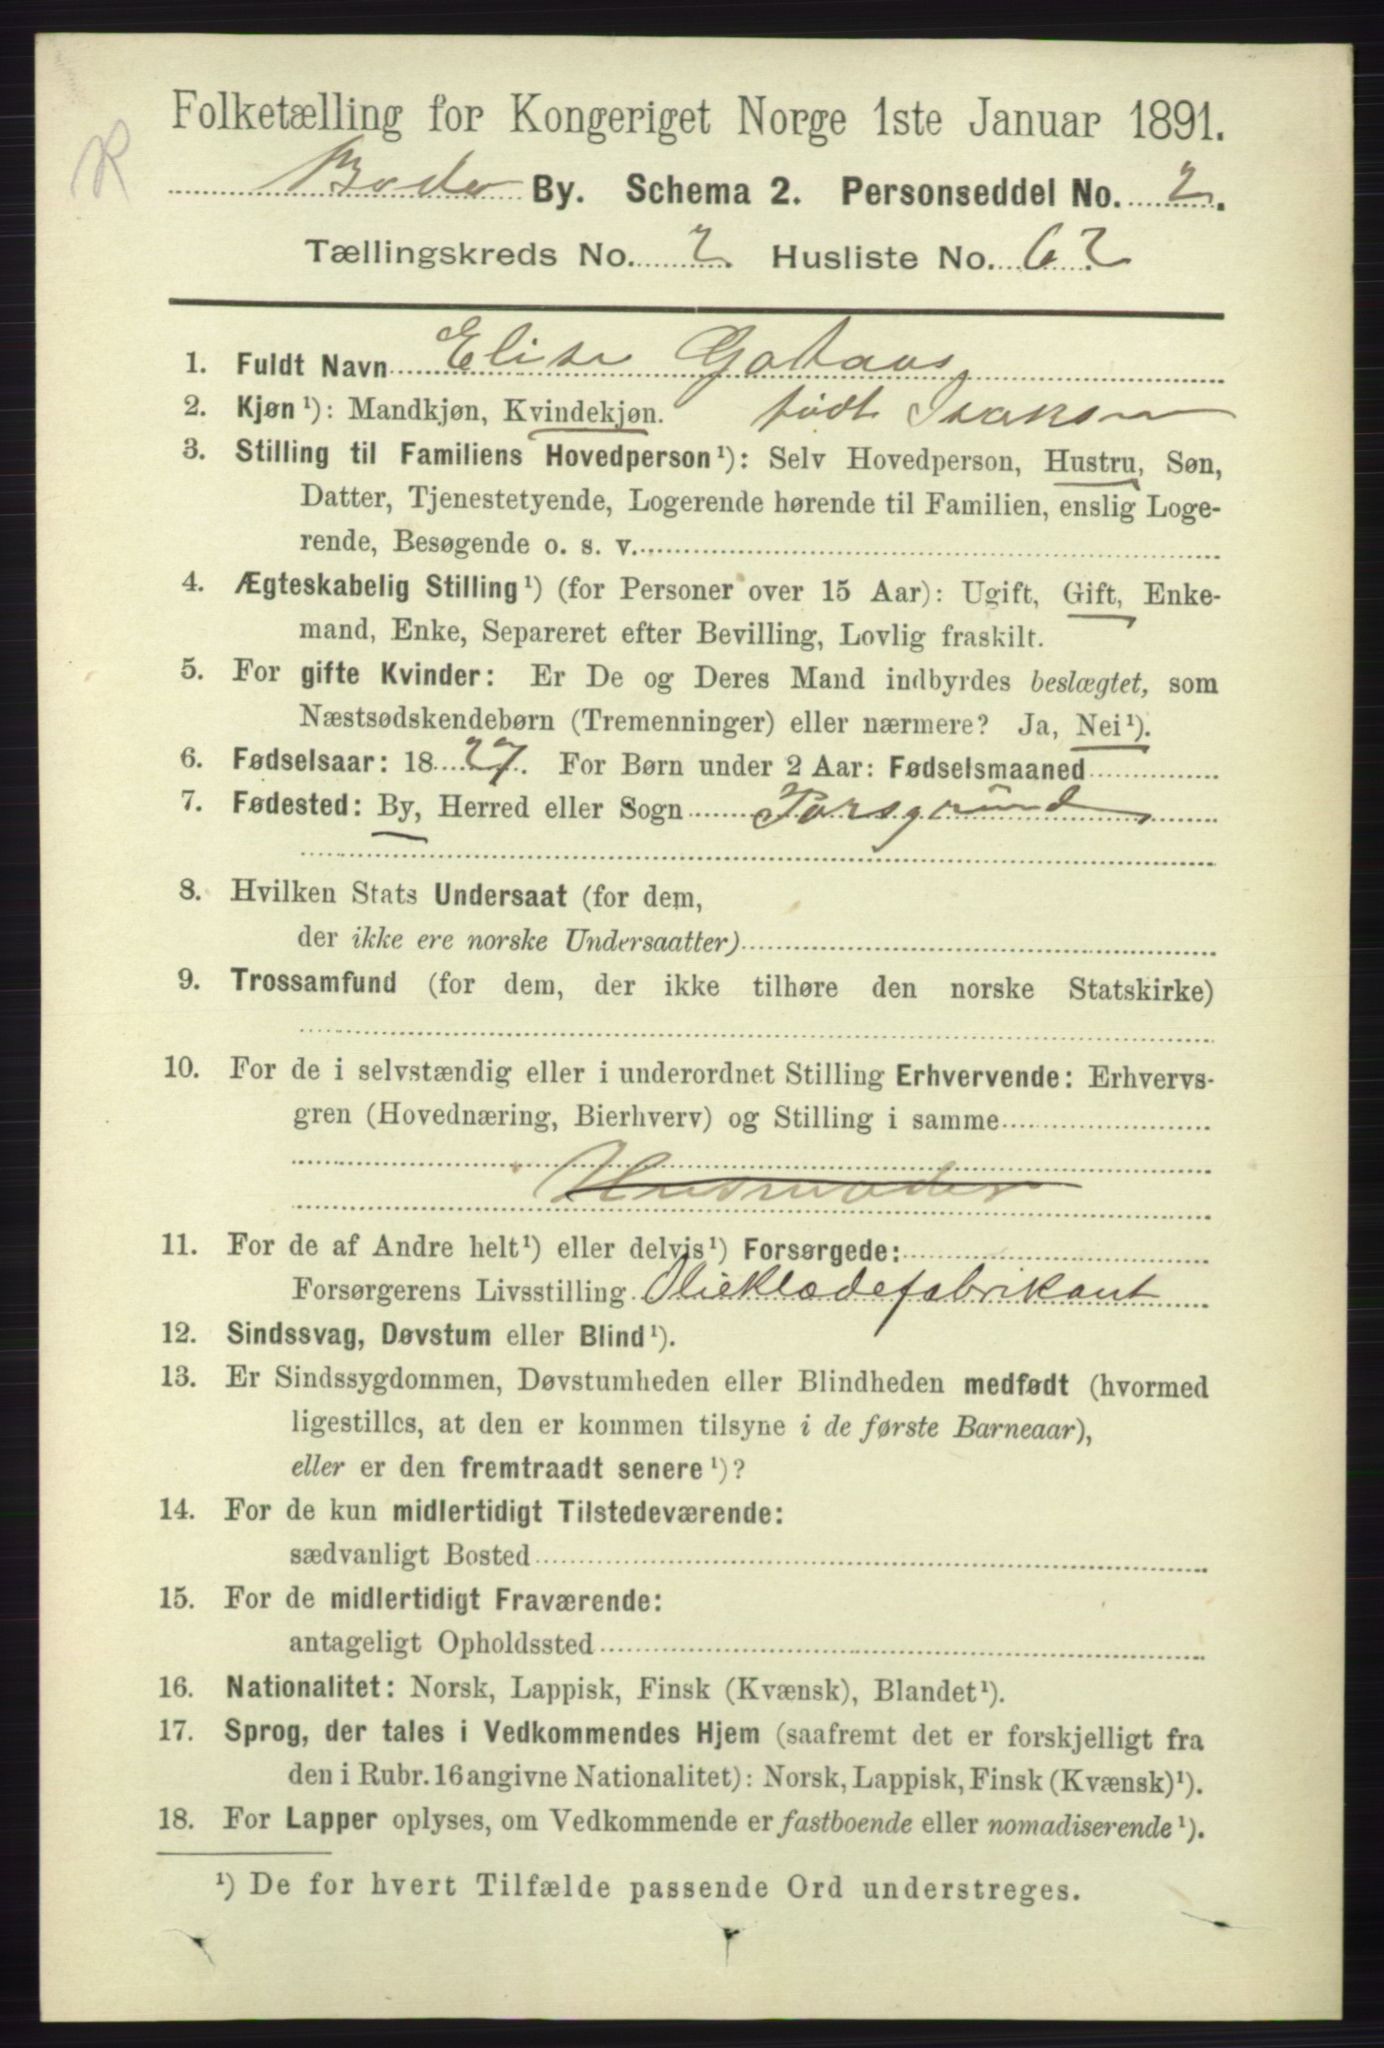 R
Folketælling for Kongeriget Norge 1ste Januar 1891.
Bodø By. Schema 2. Personseddel No. 2.
Tællingskreds No. 2. Husliste No. 62
1. Fuldt Navn Elise Gotaas
2. Kjøn ¹): Mandkjøn, Kvindekjøn. født Isaksen
3. Stilling til Familiens Hovedperson ¹): Selv Hovedperson, Hustru, Søn,
Datter, Tjenestetyende, Logerende hørende til Familien, enslig Loge-
rende, Besøgende o. s. v.
4. Ægteskabelig Stilling ¹) (for Personer over 15 Aar): Ugift, Gift, Enke-
mand, Enke, Separeret efter Bevilling, Lovlig fraskilt.
5. For gifte Kvinder: Er De og Deres Mand indbyrdes beslægtet, som
Næstsødskendebørn (Tremenninger) eller nærmere? Ja, Nei ¹).
6. Fødselsaar: 1827. For Børn under 2 Aar: Fødselsmaaned
7. Fødested: By, Herred eller Sogn Porsgrund
8. Hvilken Stats Undersaat (for dem,
der ikke ere norske Undersaatter)
9. Trossamfund (for dem, der ikke tilhøre den norske Statskirke)
10. For de i selvstændig eller i underordnet Stilling Erhvervende: Erhvervs-
gren (Hovednæring, Bierhverv) og Stilling i samme
Husmoder
11. For de af Andre helt ¹) eller delvis ¹) Forsørgede:
Forsørgerens Livsstilling Olieklædefabrikant
12. Sindssvag, Døvstum eller Blind ¹).
13. Er Sindssygdommen, Døvstumheden eller Blindheden medfødt (hvormed
ligestilles, at den er kommen tilsyne i de første Barneaar),
eller er den fremtraadt senere ¹)?
14. For de kun midlertidigt Tilstedeværende:
sædvanligt Bosted
15. For de midlertidigt Fraværende:
antageligt Opholdssted
16. Nationalitet: Norsk, Lappisk, Finsk (Kvænsk), Blandet ¹).
17. Sprog, der tales i Vedkommendes Hjem (saafremt det er forskjelligt fra
den i Rubr. 16 angivne Nationalitet): Norsk, Lappisk, Finsk (Kvænsk) ¹).
18. For Lapper oplyses, om Vedkommende er fastboende eller nomadiserende ¹).
¹) De for hvert Tilfælde passende Ord understreges.